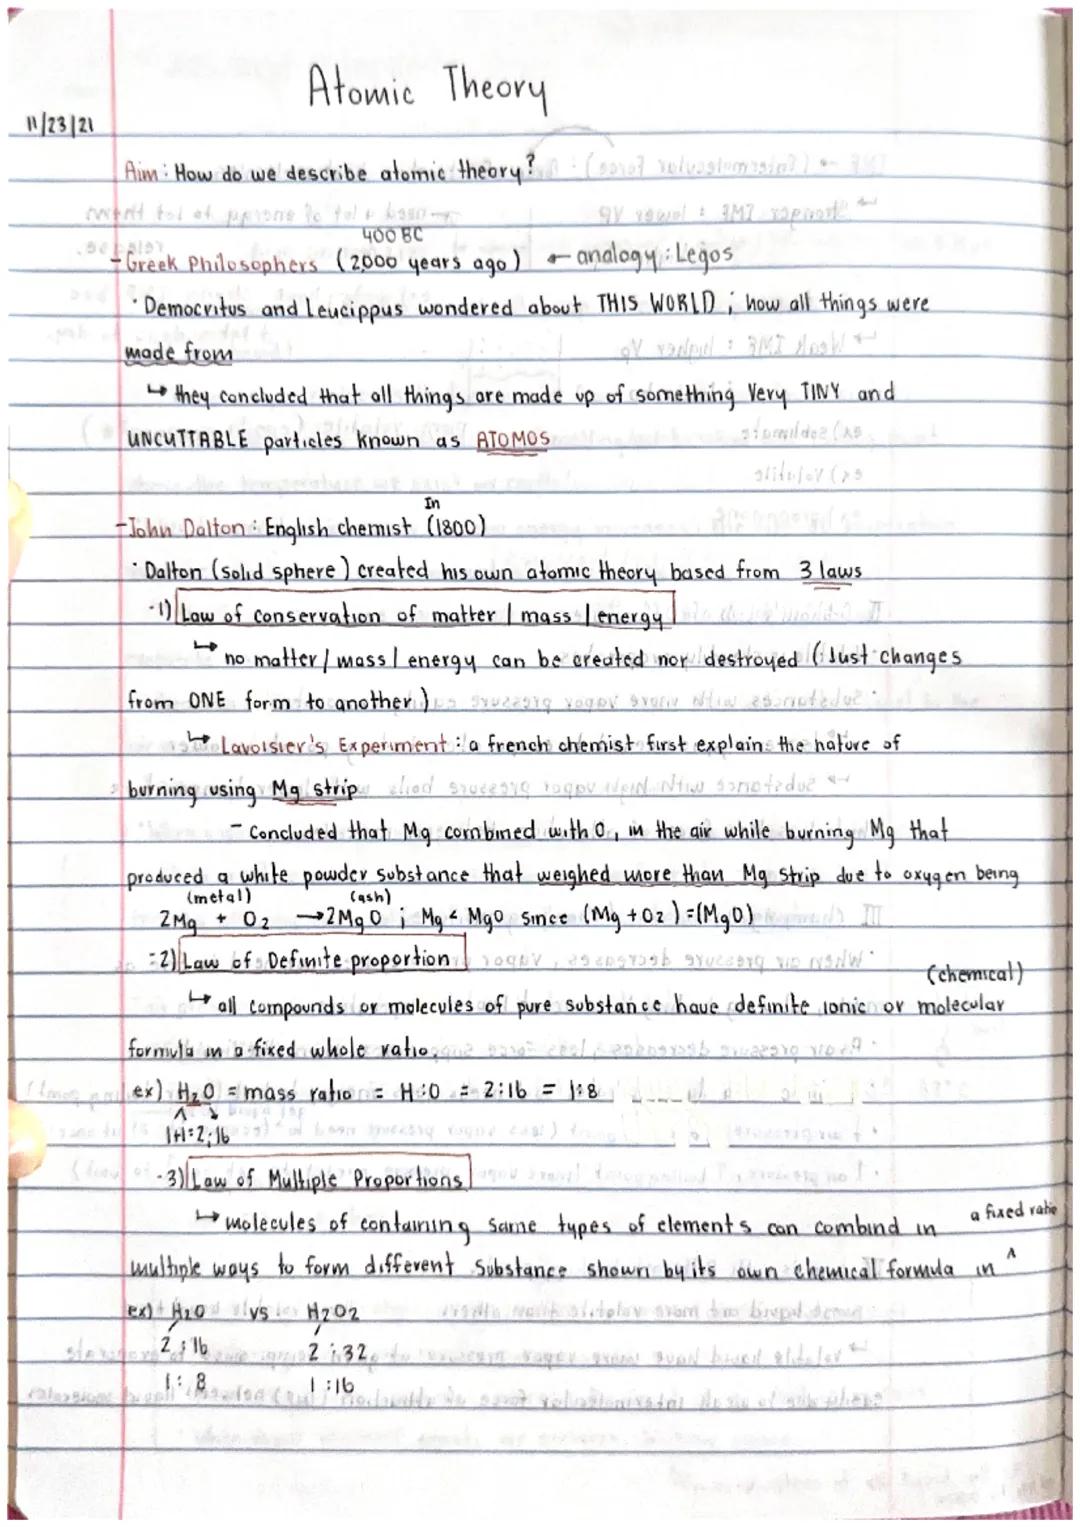 Atomic Theory
11/23/21
Aim: How do we describe atomic theory?
400 BC
-Greek Philosophers (2000 years ago) ← analogy: Legos
· Democritus and Leucippus wondered about THIS WORLD; how all things were
made from
↳ they concluded that all things are made up of something Very TINY and
UNCUTTABLE particles known as ATOMOS
In
-John Dalton: English chemist (1800)
· Dalton (solid sphere) created his own atomic theory based from 3 laws
-1) Law of conservation of matter / mass / energy
↳ no matter / mass / energy can be created nor destroyed (Just changes
from ONE form to another)
↳ Lavoisier's Experiment: a french chemist first explain the nature of
burning using Mg strip
- Concluded that Mg combined with O, in the air while burning Mg that
produced a white powder substance that weighed more than Mg strip due to oxygen being
(metal) (ash)
2Mg + O2 → 2MgO; Mg < MgO since (Mg + O2) = (MgO)
-2) Law of Definite proportion
(chemical)
↳ all compounds or molecules of pure substance have definite ionic or molecular
formula in a fixed whole ratio.
ex) H2O = mass ratio = H:O = 2:16 = 1:8
1H=2;16
-3) Law of Multiple Proportions
↳ molecules of containing same types of elements can combind in a fixed ratio
multiple ways to form different Substance shown by its own chemical formula in ^
ex) H2O vs H2O2
2:16 2:32
1:8 1:16